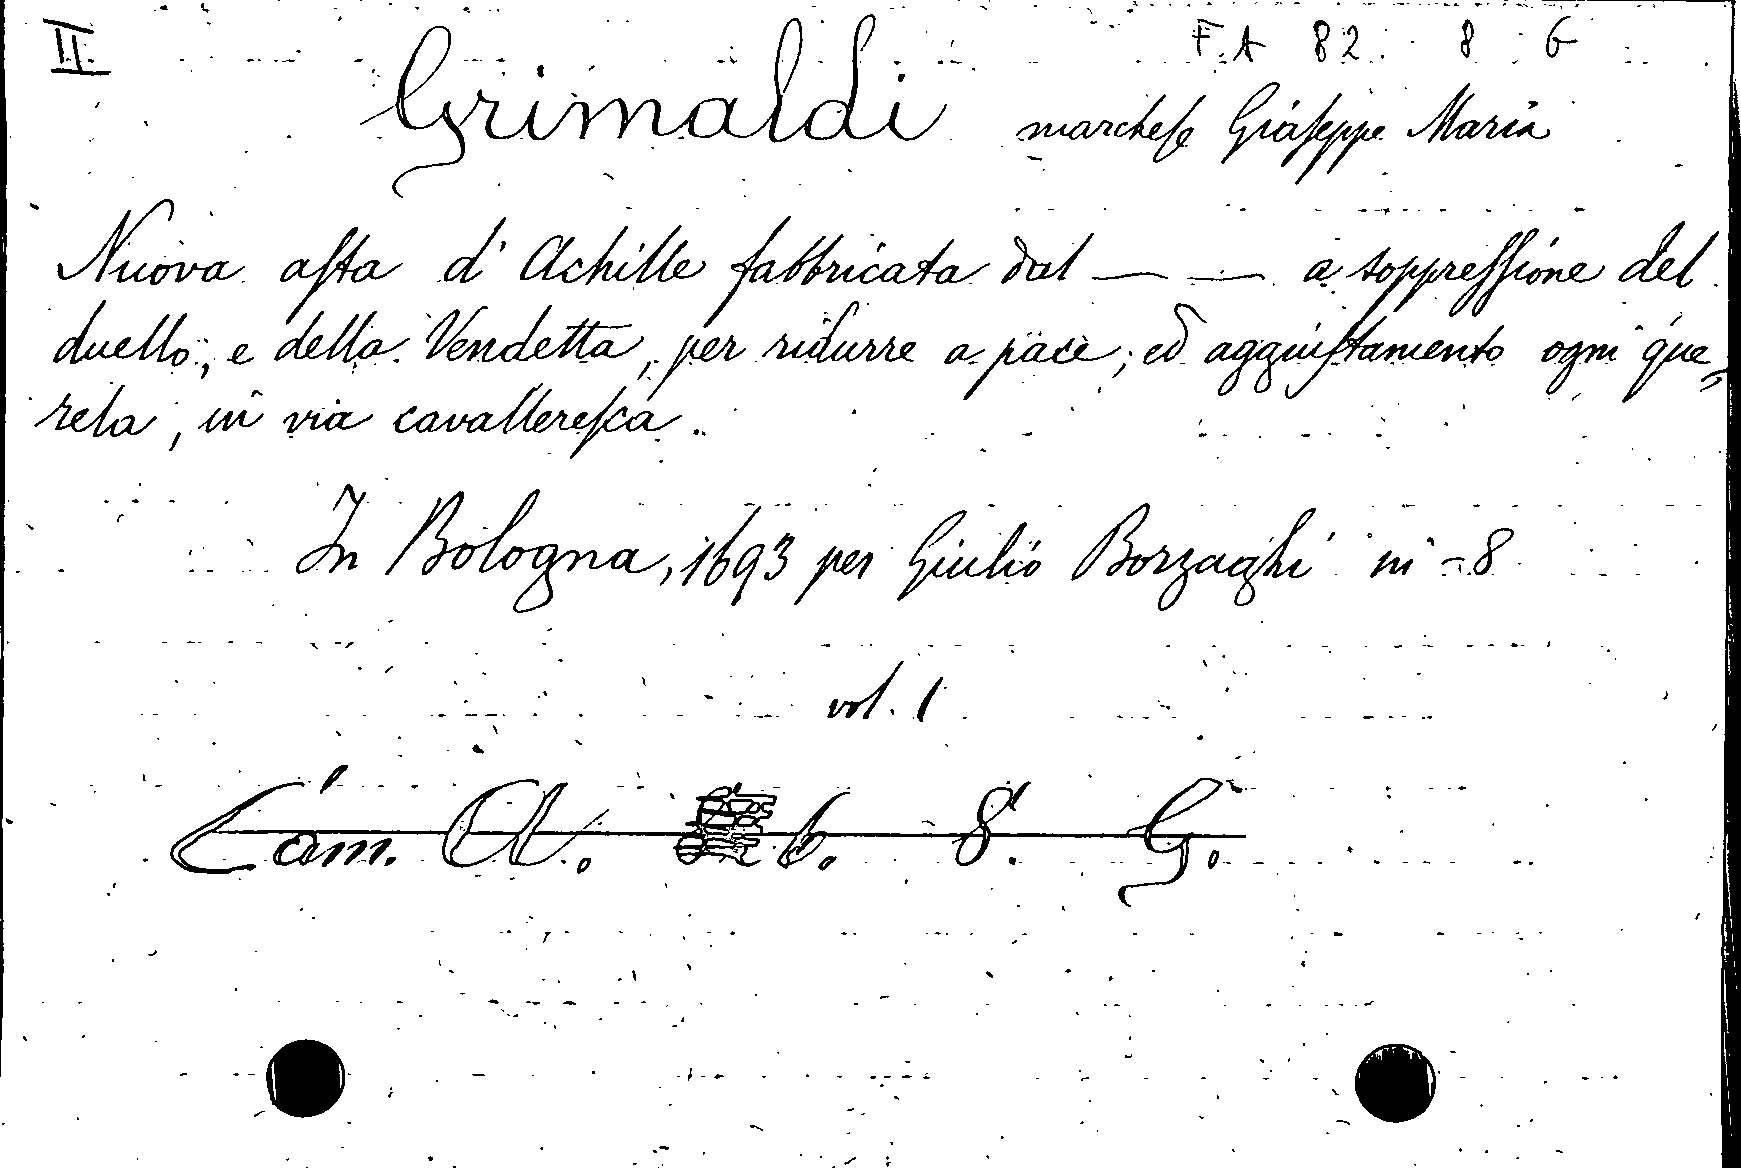 II. F.A 82. 8 G
Grimaldi marchese Giuseppe Maria
Nuova asta d'Achille fabbricata dal — — a soppressione del
duello, e della Vendetta, per ridurre a pace, ed aggiustamento ogni que=
rela, in via cavalleresca.
In Bologna, 1693 per Giulio Borzaghi in-8
vol. 1
Cam. A. b. 8. G.